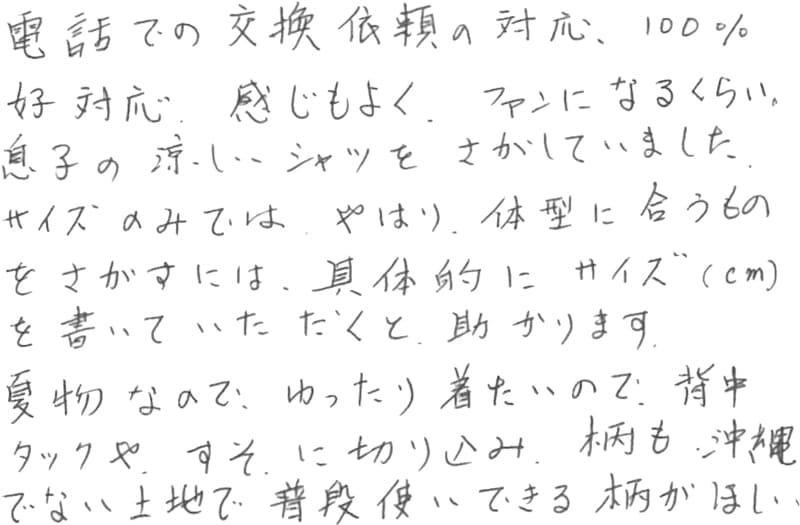 電話での交換依頼の対応、100%
好対応。感じもよく、ファンになるくらい。
息子の涼しいシャツをさがしていました。
サイズのみでは、やはり、体型に合うもの
をさがすには、具体的にサイズ(cm)
を書いていただくと、助かります。
夏物なので、ゆったり着たいので、背中
タックや、すそに切り込み、柄も沖縄
でない土地で普段使いできる柄がほしい